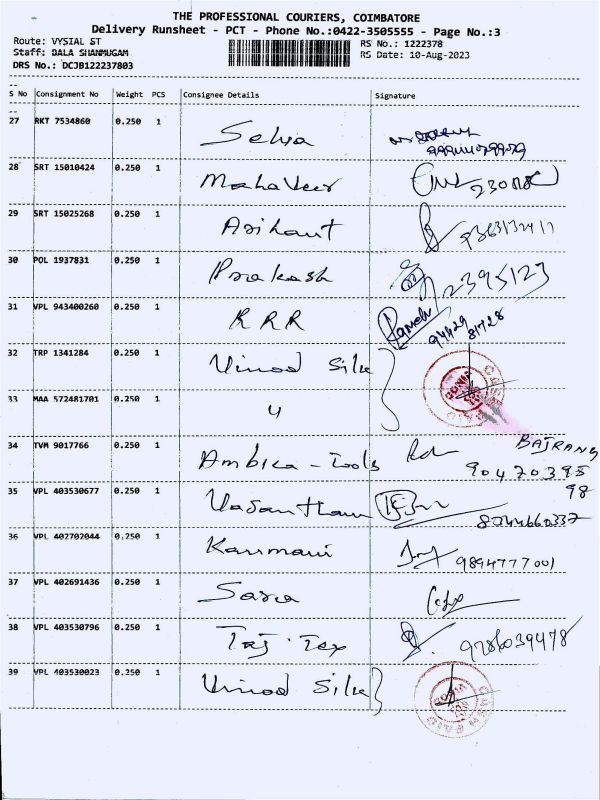 THE PROFESSIONAL COURIERS, COIMBATORE
Delivery Runsheet - PCT - Phone No.:0422-3505555 - Page No.:3
Route: VYSIAL ST
Staff: BALA SHANMUGAM
DRS No.: DCJB122237803
RS No.: 1222378
RS Date: 10-Aug-2023
S No Consignment No Weight PCS Consignee Details Signature
27 RKT 7534860 0.250 1 Selva
28 SRT 15010424 0.250 1 Mahaveer
29 SRT 15025268 0.250 1 Arihant
30 POL 1937831 0.250 1 Prakash 2395123
31 VPL 943400260 0.250 1 RRR Ramesh
32 TRP 1341284 0.250 1 Vinod Silk
33 MAA 572481701 0.250 1 4
34 TVM 9017766 0.250 1 Ambica - Tools BAJRANG
90470395
98
35 VPL 403530677 0.250 1 Vasantham 8344660337
36 VPL 402702044 0.250 1 Kanmani 9894777001
37 VPL 402691436 0.250 1 Sara
38 VPL 403530796 0.250 1 Taj. Tex 9786039478
39 VPL 403530023 0.250 1 Vinod Silk